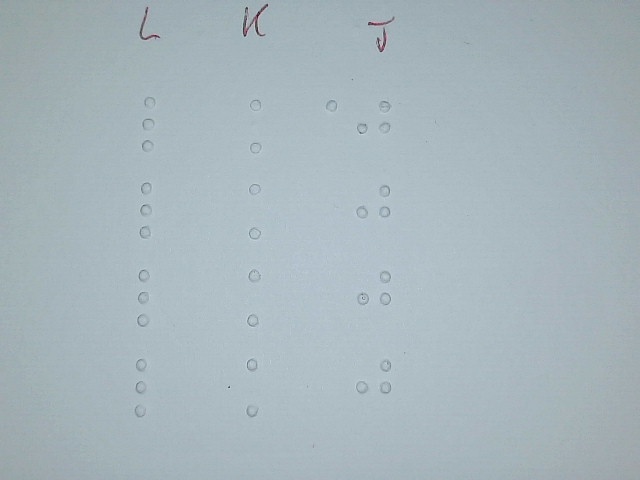 L K J
⠇ ⠅⠈⠚
⠇ ⠅ ⠚
⠇ ⠅ ⠚
⠇ ⠅ ⠚